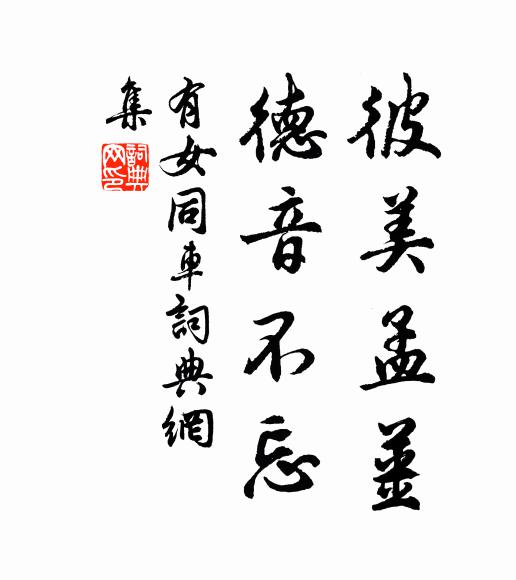 彼美孟薑
德音不忘
有女同車詞典網
集
詞典網印